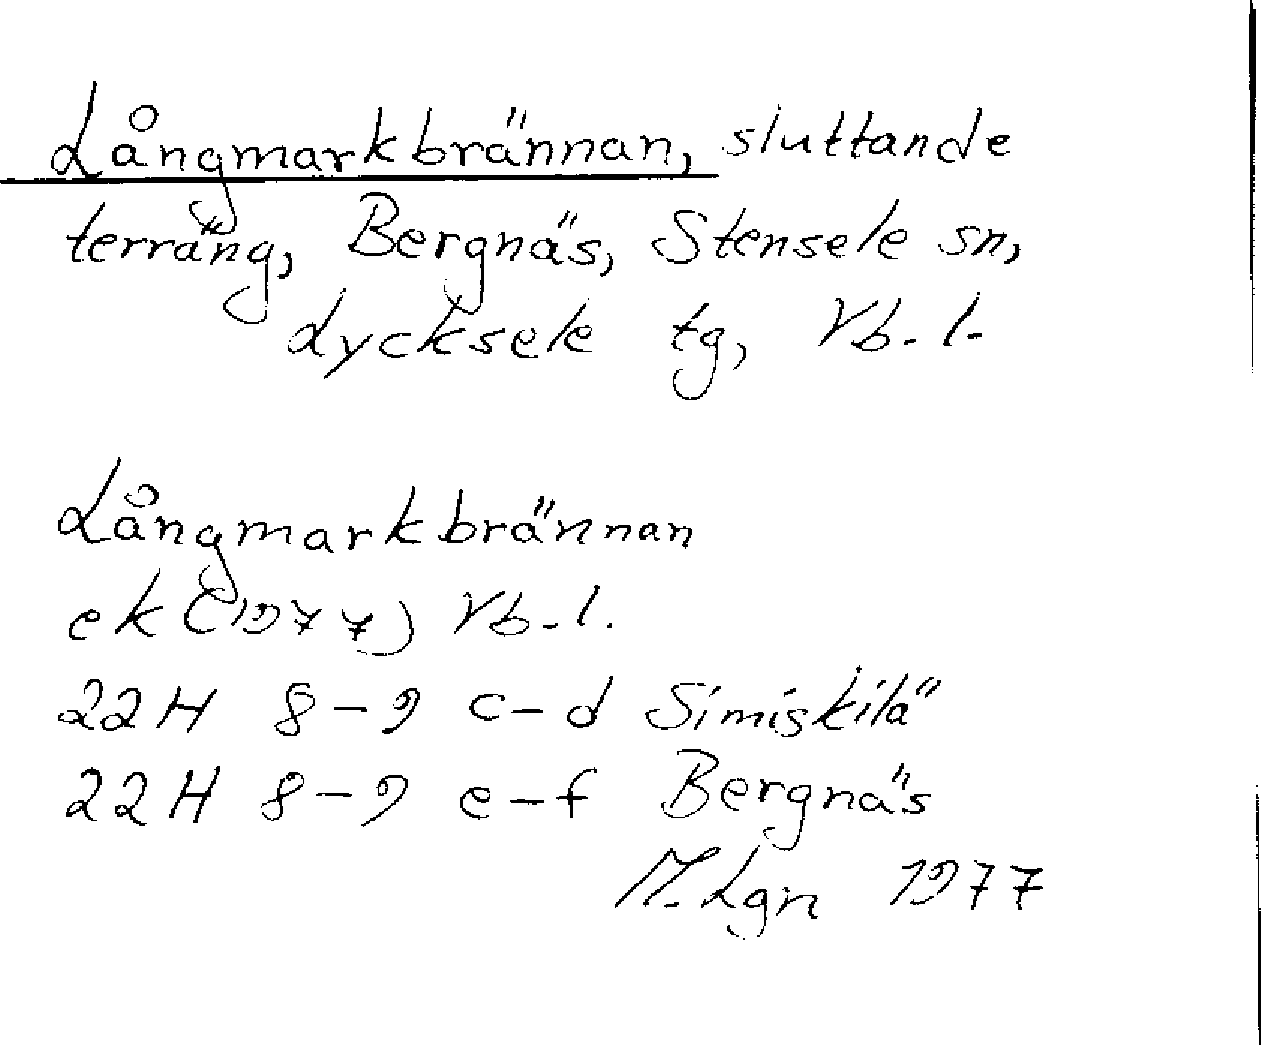 Långmarkbrännan, sluttande
terräng, Bergnäs, Stensele sn,
Lycksele tg, Vb.l.
Långmarkbrännan
ek (1977) Vb.l.
22H 8-9 c-d Simiskilä
22H 8-9 e-f Bergnäs
M.Lgn 1977